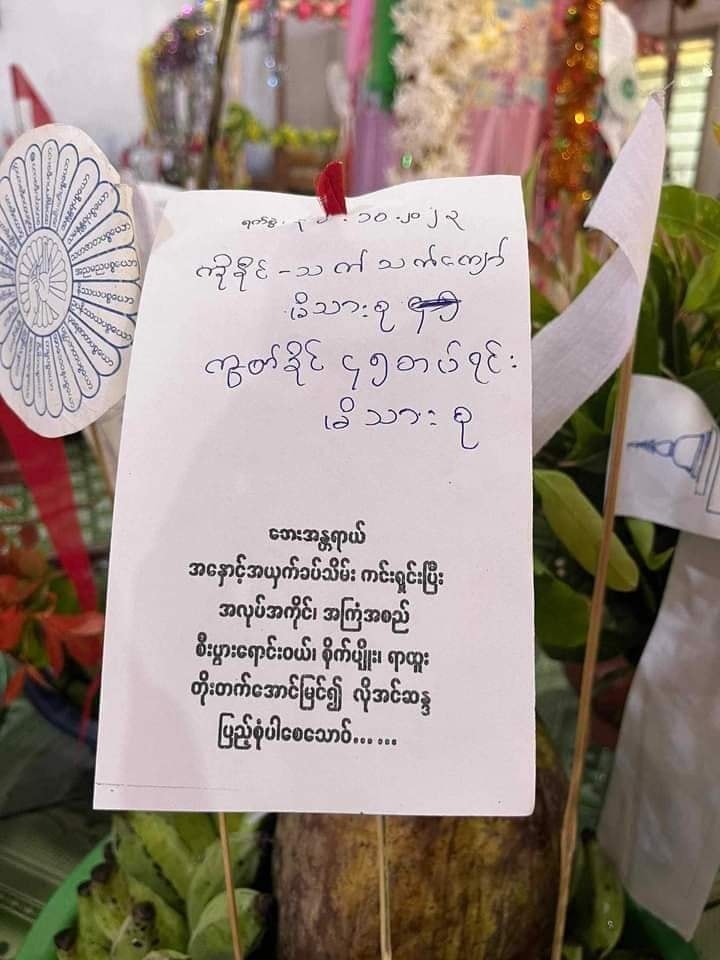 ရက်စွဲ၊ ၁၀.၂၀၂၃
ကိုနိုင် - သက် သက်ကျော်
မိသားစု
ကွတ်ခိုင် ၄၅တပ်ရင်း
မိသားစု
ဘေးအန္တရာယ်
အနှောင့်အယှက်ခပ်သိမ်း ကင်းရှင်းပြီး
အလုပ်အကိုင်၊ အကြံအစည်
စီးပွားရောင်းဝယ်၊ စိုက်ပျိုး၊ ရာထူး
တိုးတက်အောင်မြင်၍ လိုအင်ဆန္ဒ
ပြည့်စုံပါစေသောဝ်... ...